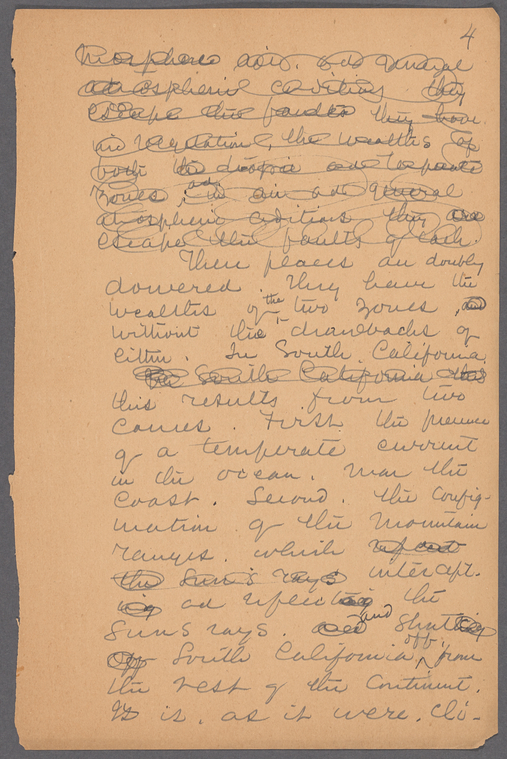 4
atmospheric conditions they
escape the faults they have
in vegetation, the wealths of
both the tropic and temperate
zones; and in air and general
atmospheric conditions they
escape the faults of each.
These places are doubly
dowered. They have the
wealths of the two zones, and
without the drawbacks of
either. In South California
South California this
this results from two
causes. First. the presence
of a temperate current
in the ocean. near the
coast. Second. the config-
uration of the mountain
ranges. which
the sun's rays intercept.
ing and reflecting the
sun's rays. and shutting
off South California off from
the rest of the continent.
It is. as it were. cli-